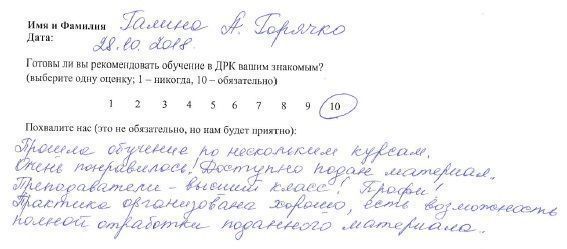 Имя и Фамилия Галина А. Горячко
Дата: 28.10.2018.
Готовы ли вы рекомендовать обучение в ДРК вашим знакомым?
(выберите одну оценку; 1 – никогда, 10 – обязательно)
1 2 3 4 5 6 7 8 9 10
Похвалите нас (это не обязательно, но нам будет приятно):
Прошла обучение по нескольким курсам.
Очень понравилось! Доступно подан материал.
Преподаватели – высший класс! Профи!
Практика организована хорошо, есть возможность
полной отработки поданного материала.